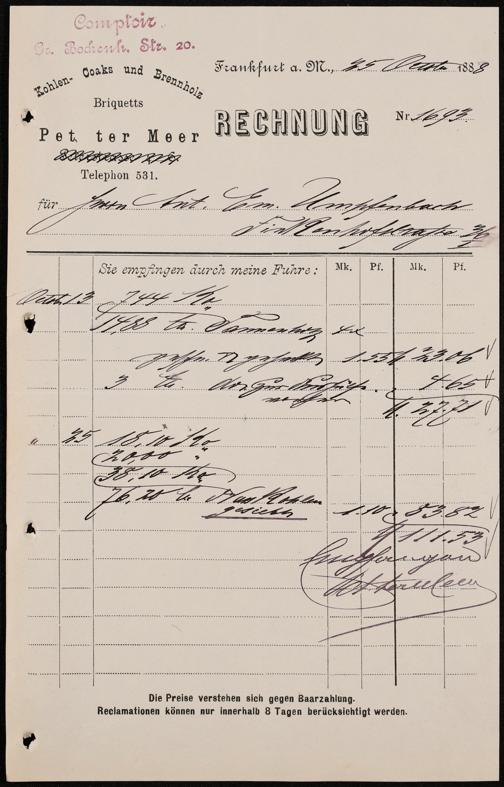 Comptoir
Gr. Bockenh. Str. 20.
Kohlen- Coaks und Brennholz
Briquetts
Pet. ter Meer
Telephon 531.
Frankfurt a. M., 25 Octbr 1888
RECHNUNG
Nr. 1693
für Herrn Ant. Em. Umpfenbach
36
Sie empfingen durch meine Fuhre: Mk. Pf. Mk. Pf.
Octb. 13 744 Ko
1488 Tannenholz 4x
1.55 23.06
3 4.65
M. 27.71
" 25 18,10 Ko
20,00 "
38,10 Ko
76,20 Kohlen
gesiebt 1.10 83.82
M 111.53
Empfangen
Die Preise verstehen sich gegen Baarzahlung.
Reclamationen können nur innerhalb 8 Tagen berücksichtigt werden.